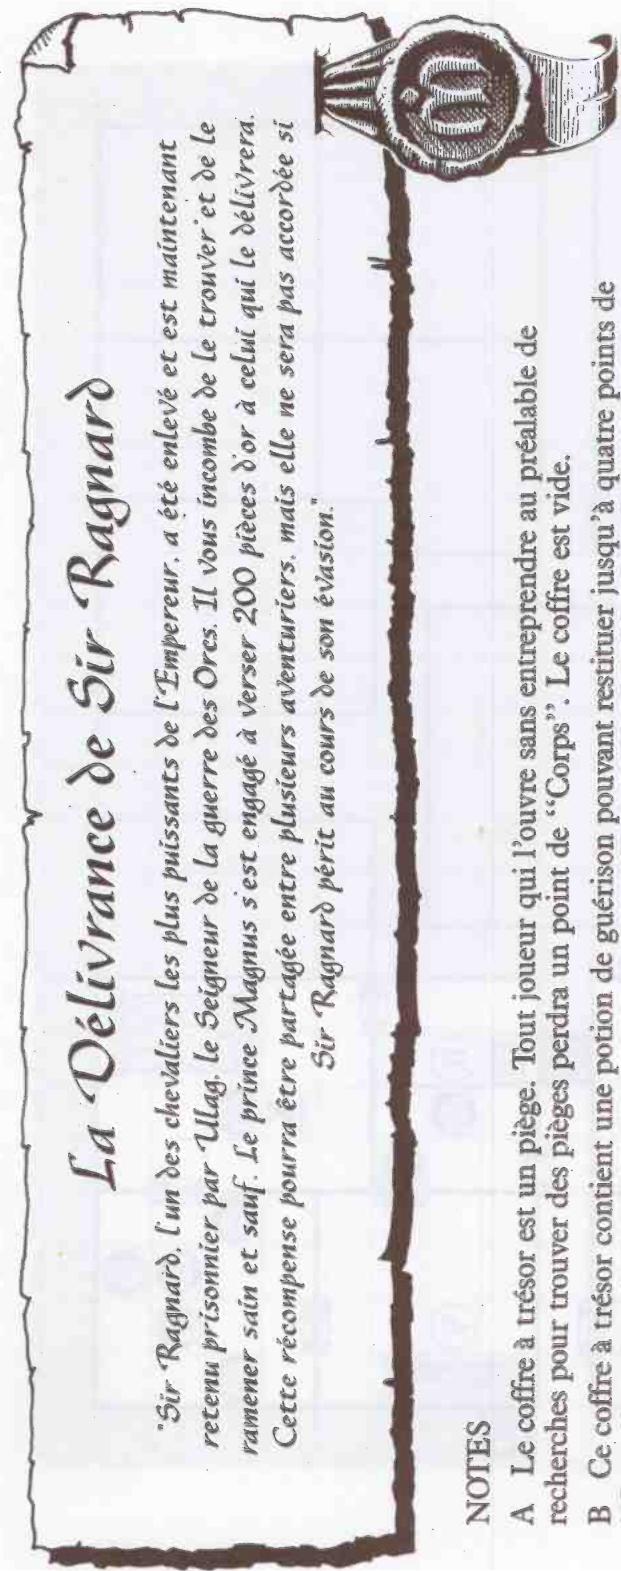 La Délivrance de Sir Ragnard
"Sir Ragnard, l'un des chevaliers les plus puissants de l'Empereur, a été enlevé et est maintenant
retenu prisonnier par Ulag, le Seigneur de la guerre des Orcs. Il vous incombe de le trouver et de le
ramener sain et sauf. Le prince Magnus s'est engagé à verser 200 pièces d'or à celui qui le délivrera.
Cette récompense pourra être partagée entre plusieurs aventuriers, mais elle ne sera pas accordée si
Sir Ragnard périt au cours de son évasion."
NOTES
A Le coffre à trésor est un piège. Tout joueur qui l'ouvre sans entreprendre au préalable de
recherches pour trouver des pièges perdra un point de "Corps". Le coffre est vide.
B Ce coffre à trésor contient une potion de guérison pouvant restituer jusqu'à quatre points de